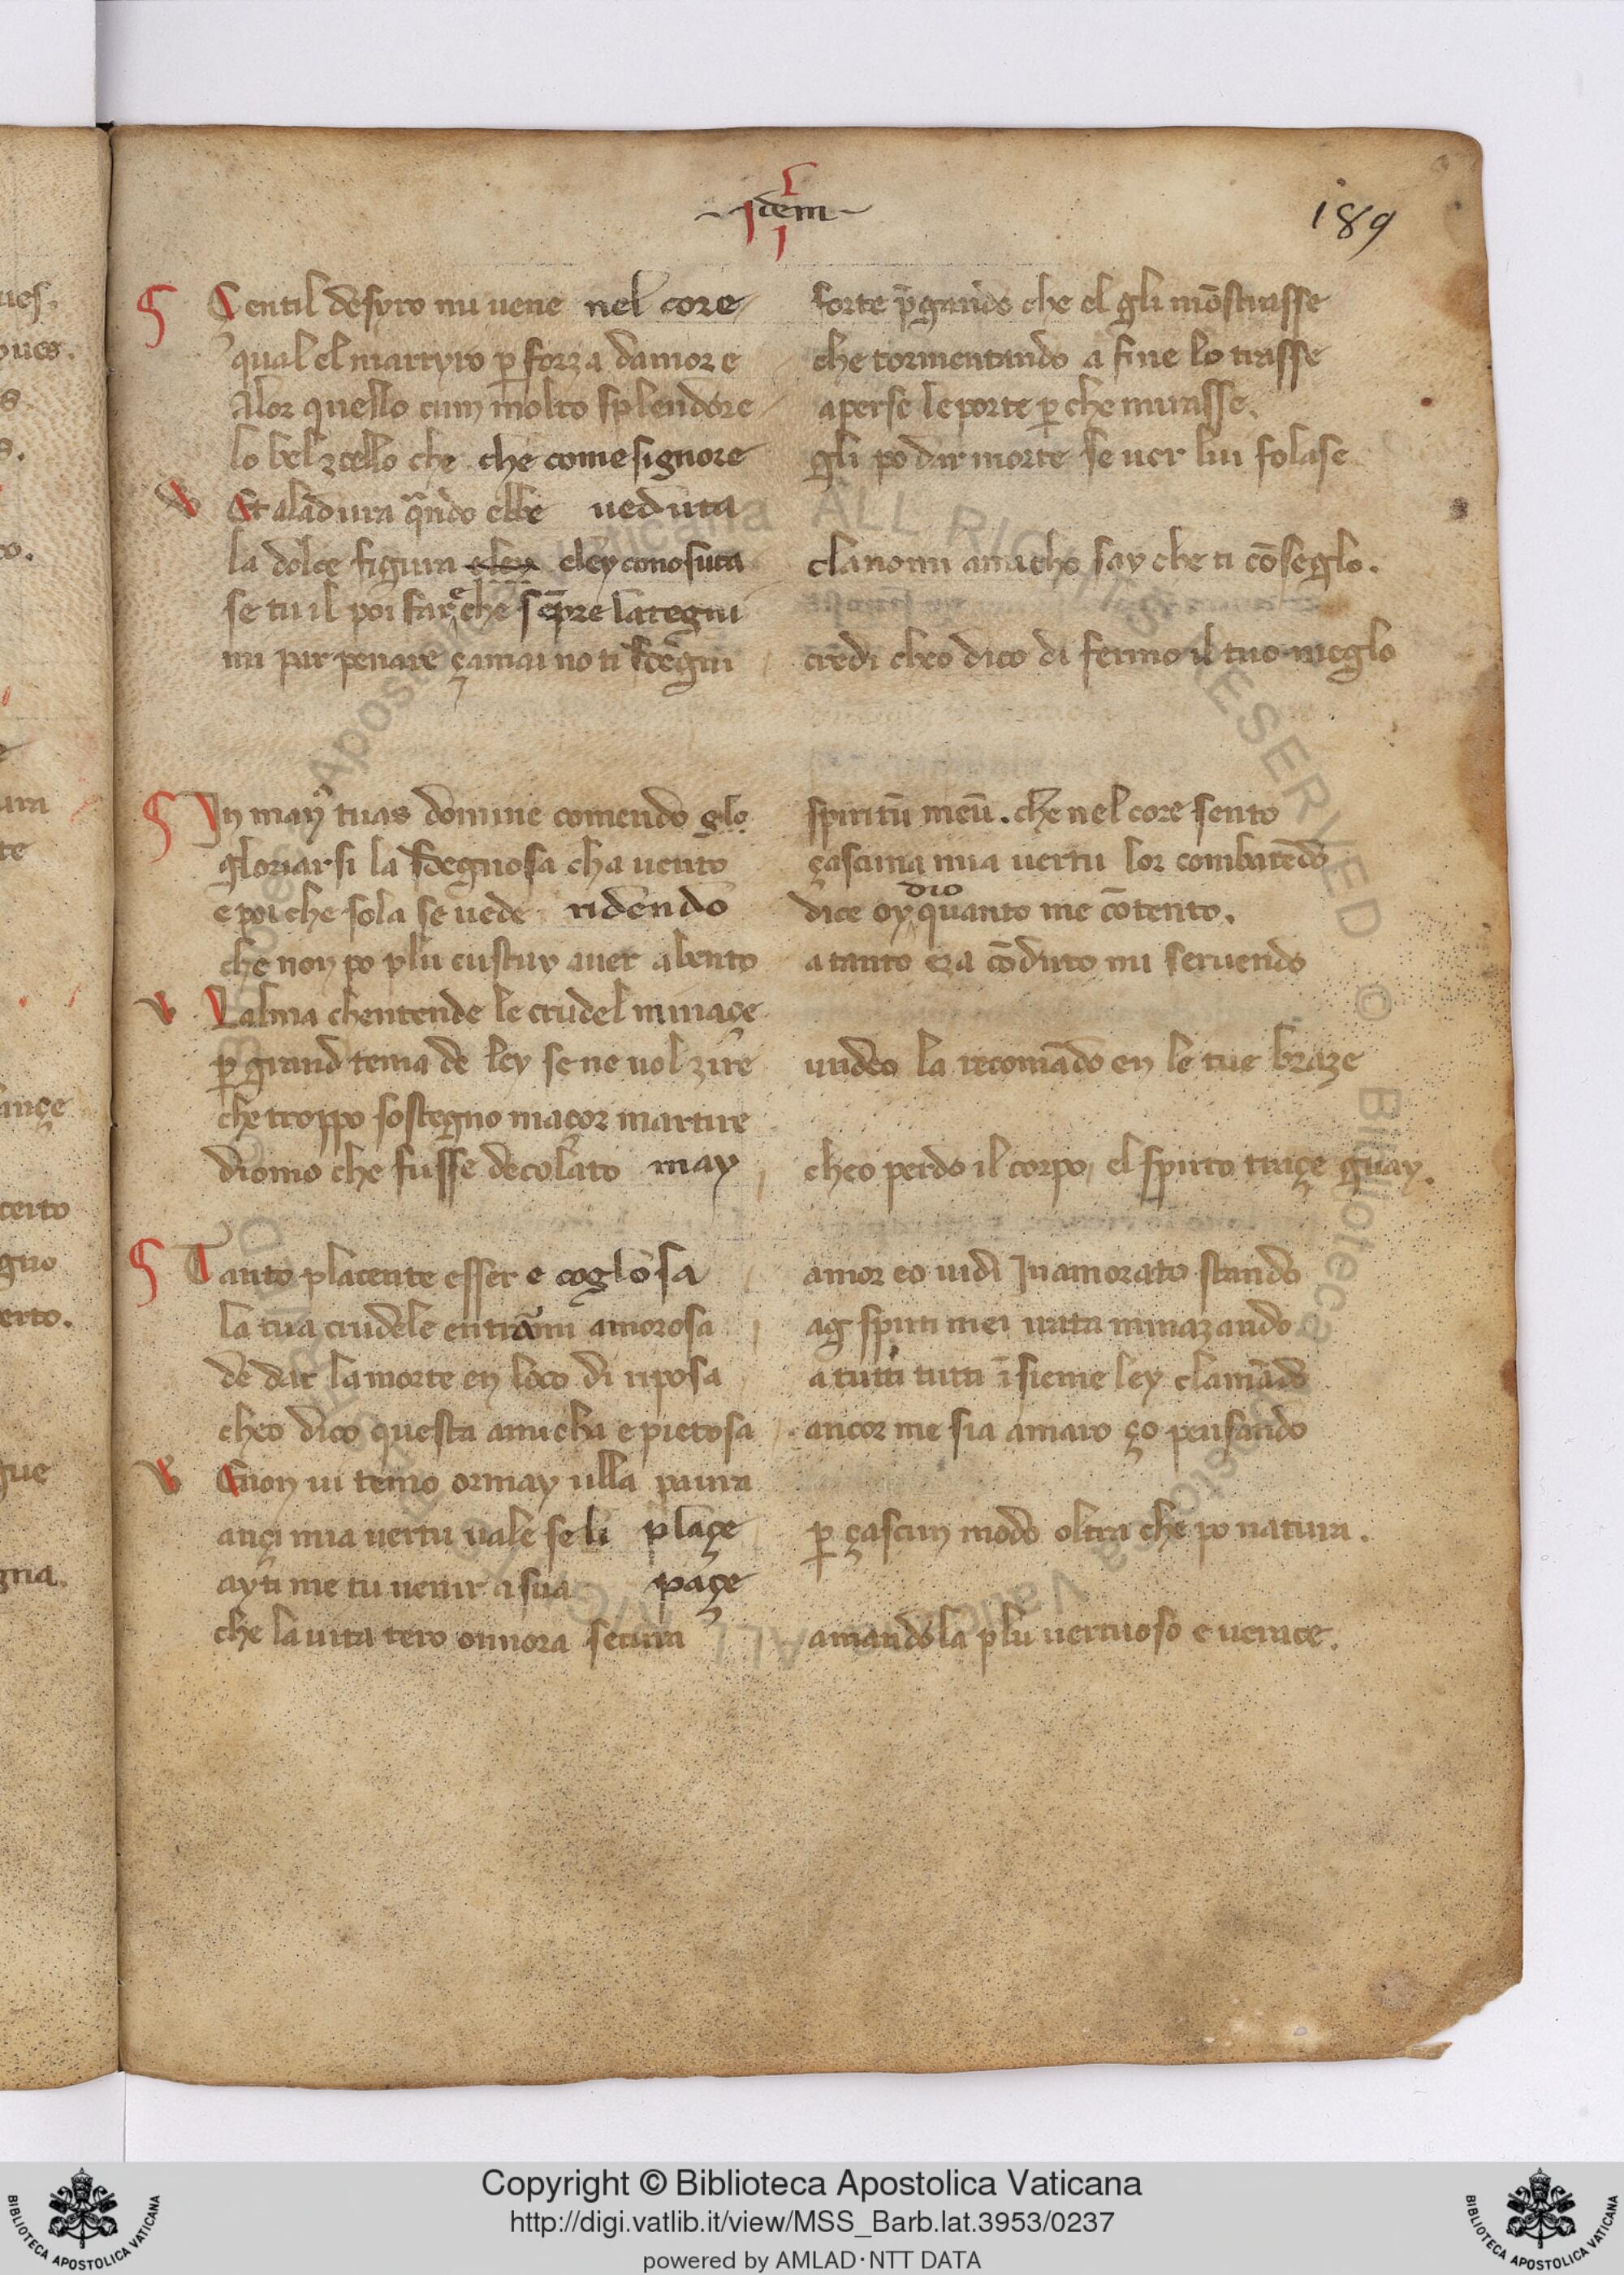 Idem
189
Gentil desyro mi uene nel core forte p̄gando che el gli mōstrasse
qual el martyro ꝑ forza damore che tormentando a fine lo trasse
Alor quello cum molto splendore aperse le porte ꝑ che mirasse.
lo bel zello che che come signore gli po dar morte se uer lui folase
Et aladura q̄ndo ebbe ueduta
la dolce figura eley cley conosuta clanomi amicho say che ti cōseglo.
se tu il poi far che sēpre la tegni
mi par penare çamai no ti sdegni credi cheo dico di fermo il tuo meglo
In many tuas domine comendo glo spiritū meū. che nel core sento
gloriarsi la sdegnosa cha uento çascuna mia uertu lor combatēdo
e poi che sola se uede ridendo dice oy dio quanto me cōtento.
che non po plu custuy auer abento a tanto eza cōduto mi seruendo
Lalma chentende le crudel minaçe
ꝑ grand tema de ley se ne uol zire undeo la recomādo en le tue braze
che troppo sostegno maçor martire
diomo che fusse decolato may cheo perdo il corpo, el spirto traçe guay.
Tanto placente esser e coglosa amor eo uidi Inamorato stando
la tua crudele entrami amorosa ag spirti mei irata minazando
de dar la morte en loco di riposa a tutti tutti īsieme ley clamādo
cheo dico questa amicha e pietosa ancor me sia amaro ço pensando
Enon ui temo ormay ulla paura
ançi mia uertu uale se li plaçe ꝑ çascun modo oltra che po natura.
ayti me tu uenir a sua paçe
che la uita tero onnora secura amandola plu uertuoso e uerace.
Copyright © Biblioteca Apostolica Vaticana
http://digi.vatlib.it/view/MSS_Barb.lat.3953/0237
powered by AMLAD·NTT DATA
BIBLIOTECA APOSTOLICA VATICANA
BIBLIOTECA APOSTOLICA VATICANA